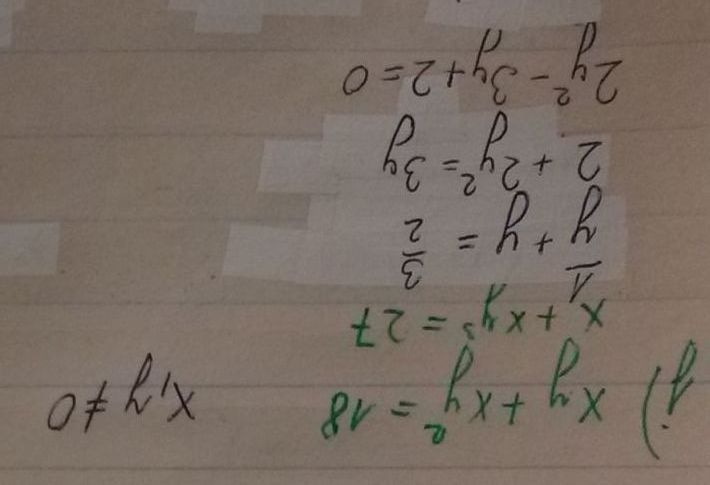 j) xy + xy² = 18
x,y ≠ 0
x + xy³ = 27
1/y + y = 3/2
2 + 2y² = 3y
2y² - 3y + 2 = 0